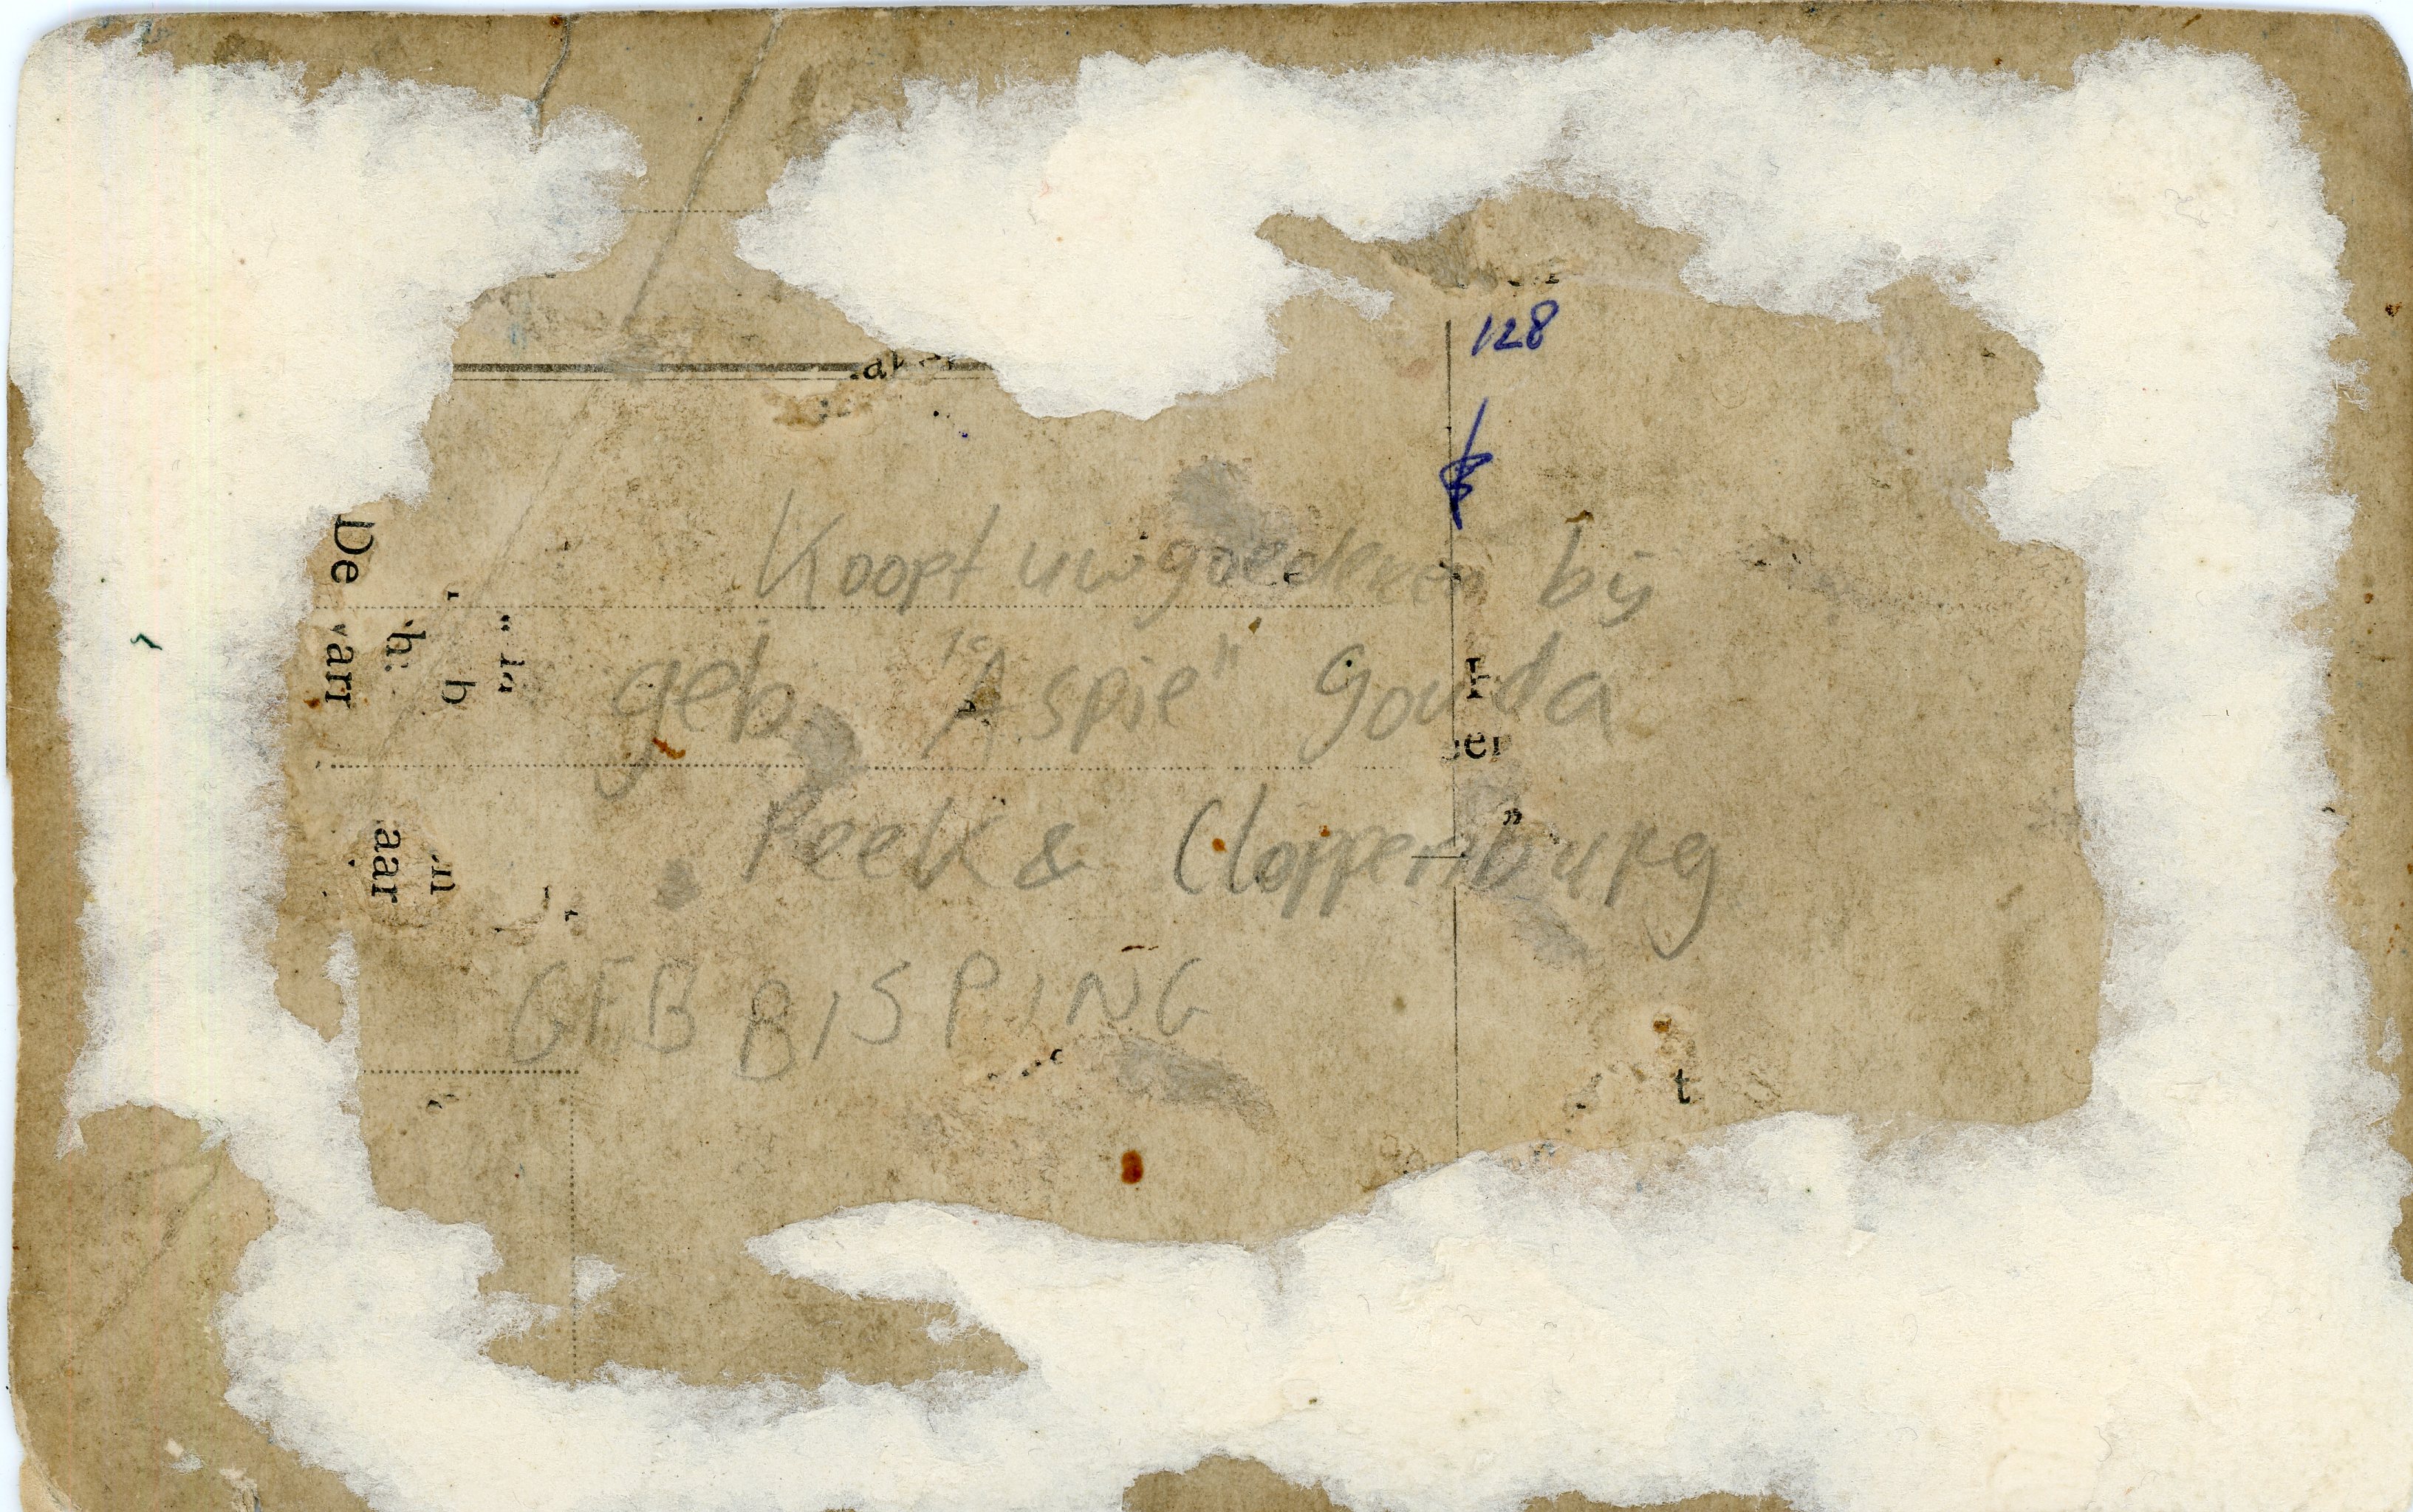 128
Koopt uw goederen bij
geb "Aspie" Gouda
Peek & Cloppenburg
GEB BISPING
De
arr
b
aar
t